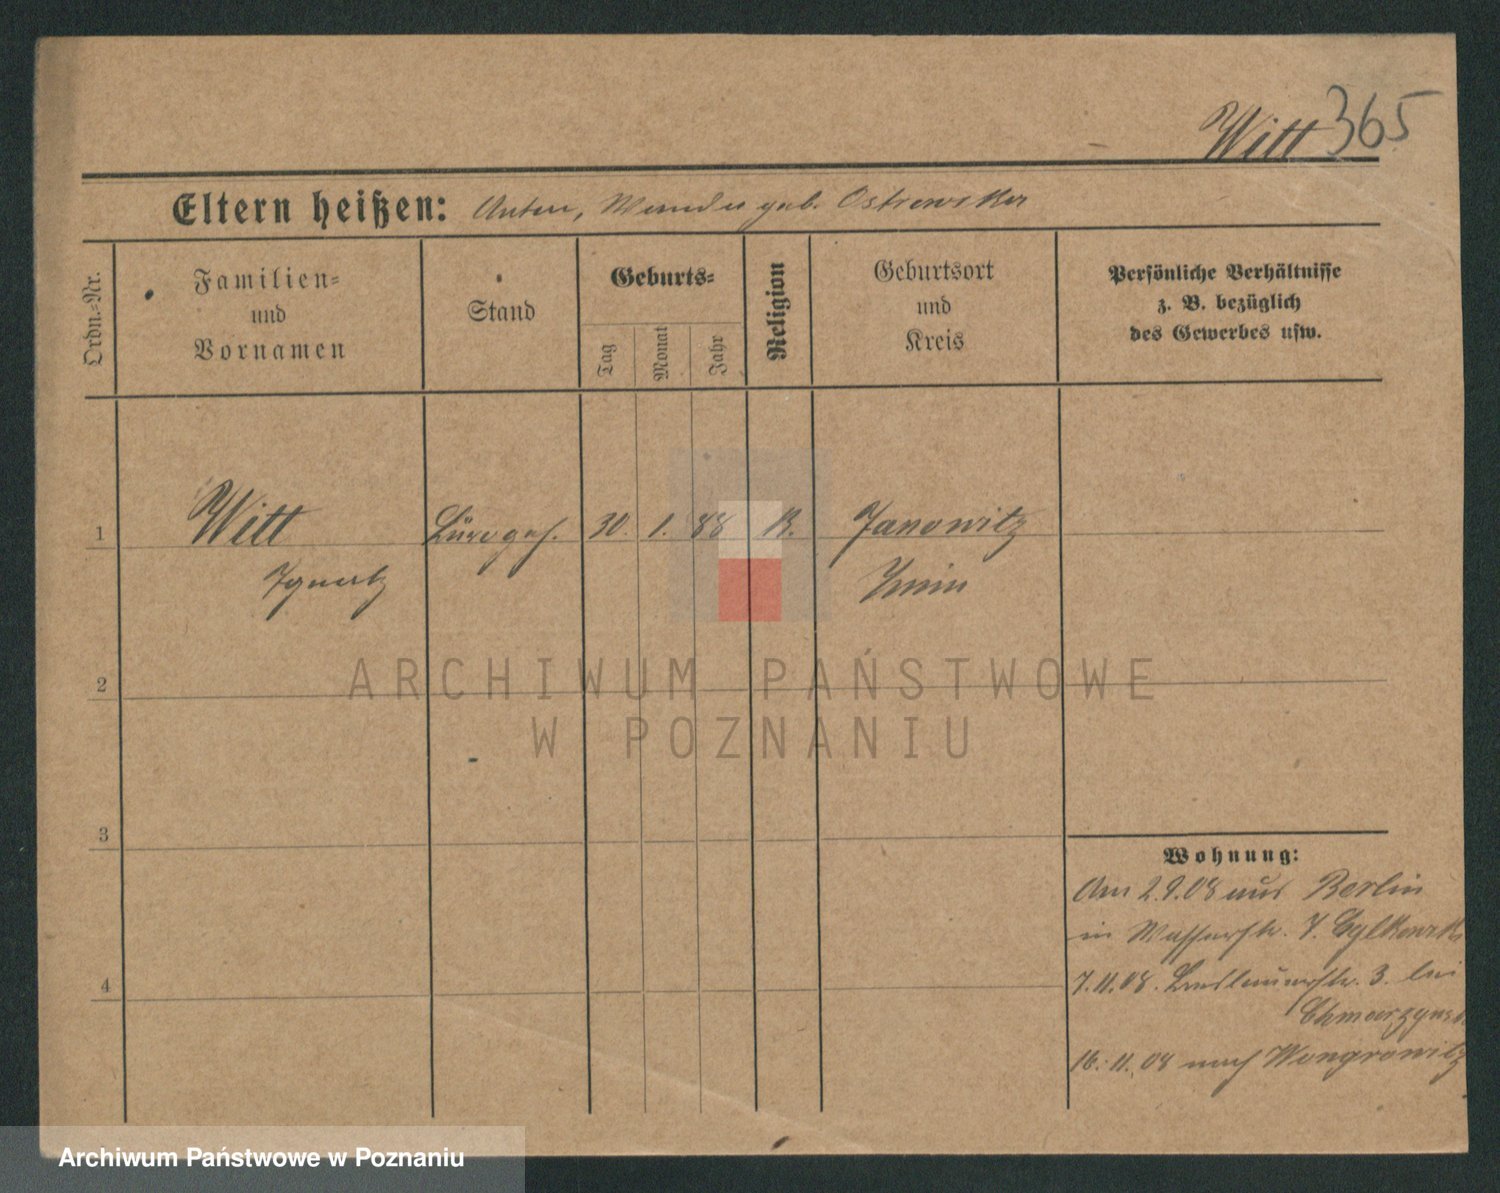 Witt 365
Eltern heißen: Anton, Wanda geb. Ostrowska
Ordn.-Nr.
Familien-
und
Vornamen
Stand
Geburts-
Tag
Monat
Jahr
Religion
Geburtsort
und
Kreis
Persönliche Verhältnisse
z. B. bezüglich
des Gewerbes usw.
1
Witt
30. 1. 88
Janowitz
Ignatz
Znin
ARCHIWUM PAŃSTWOWE
W POZNANIU
2
3
4
Wohnung:
Am 2.9.08 aus Berlin
in Wasserstr. 7.
7.11.08. 3. bei
16.11.08 nach Wongrowitz
Archiwum Państwowe w Poznaniu